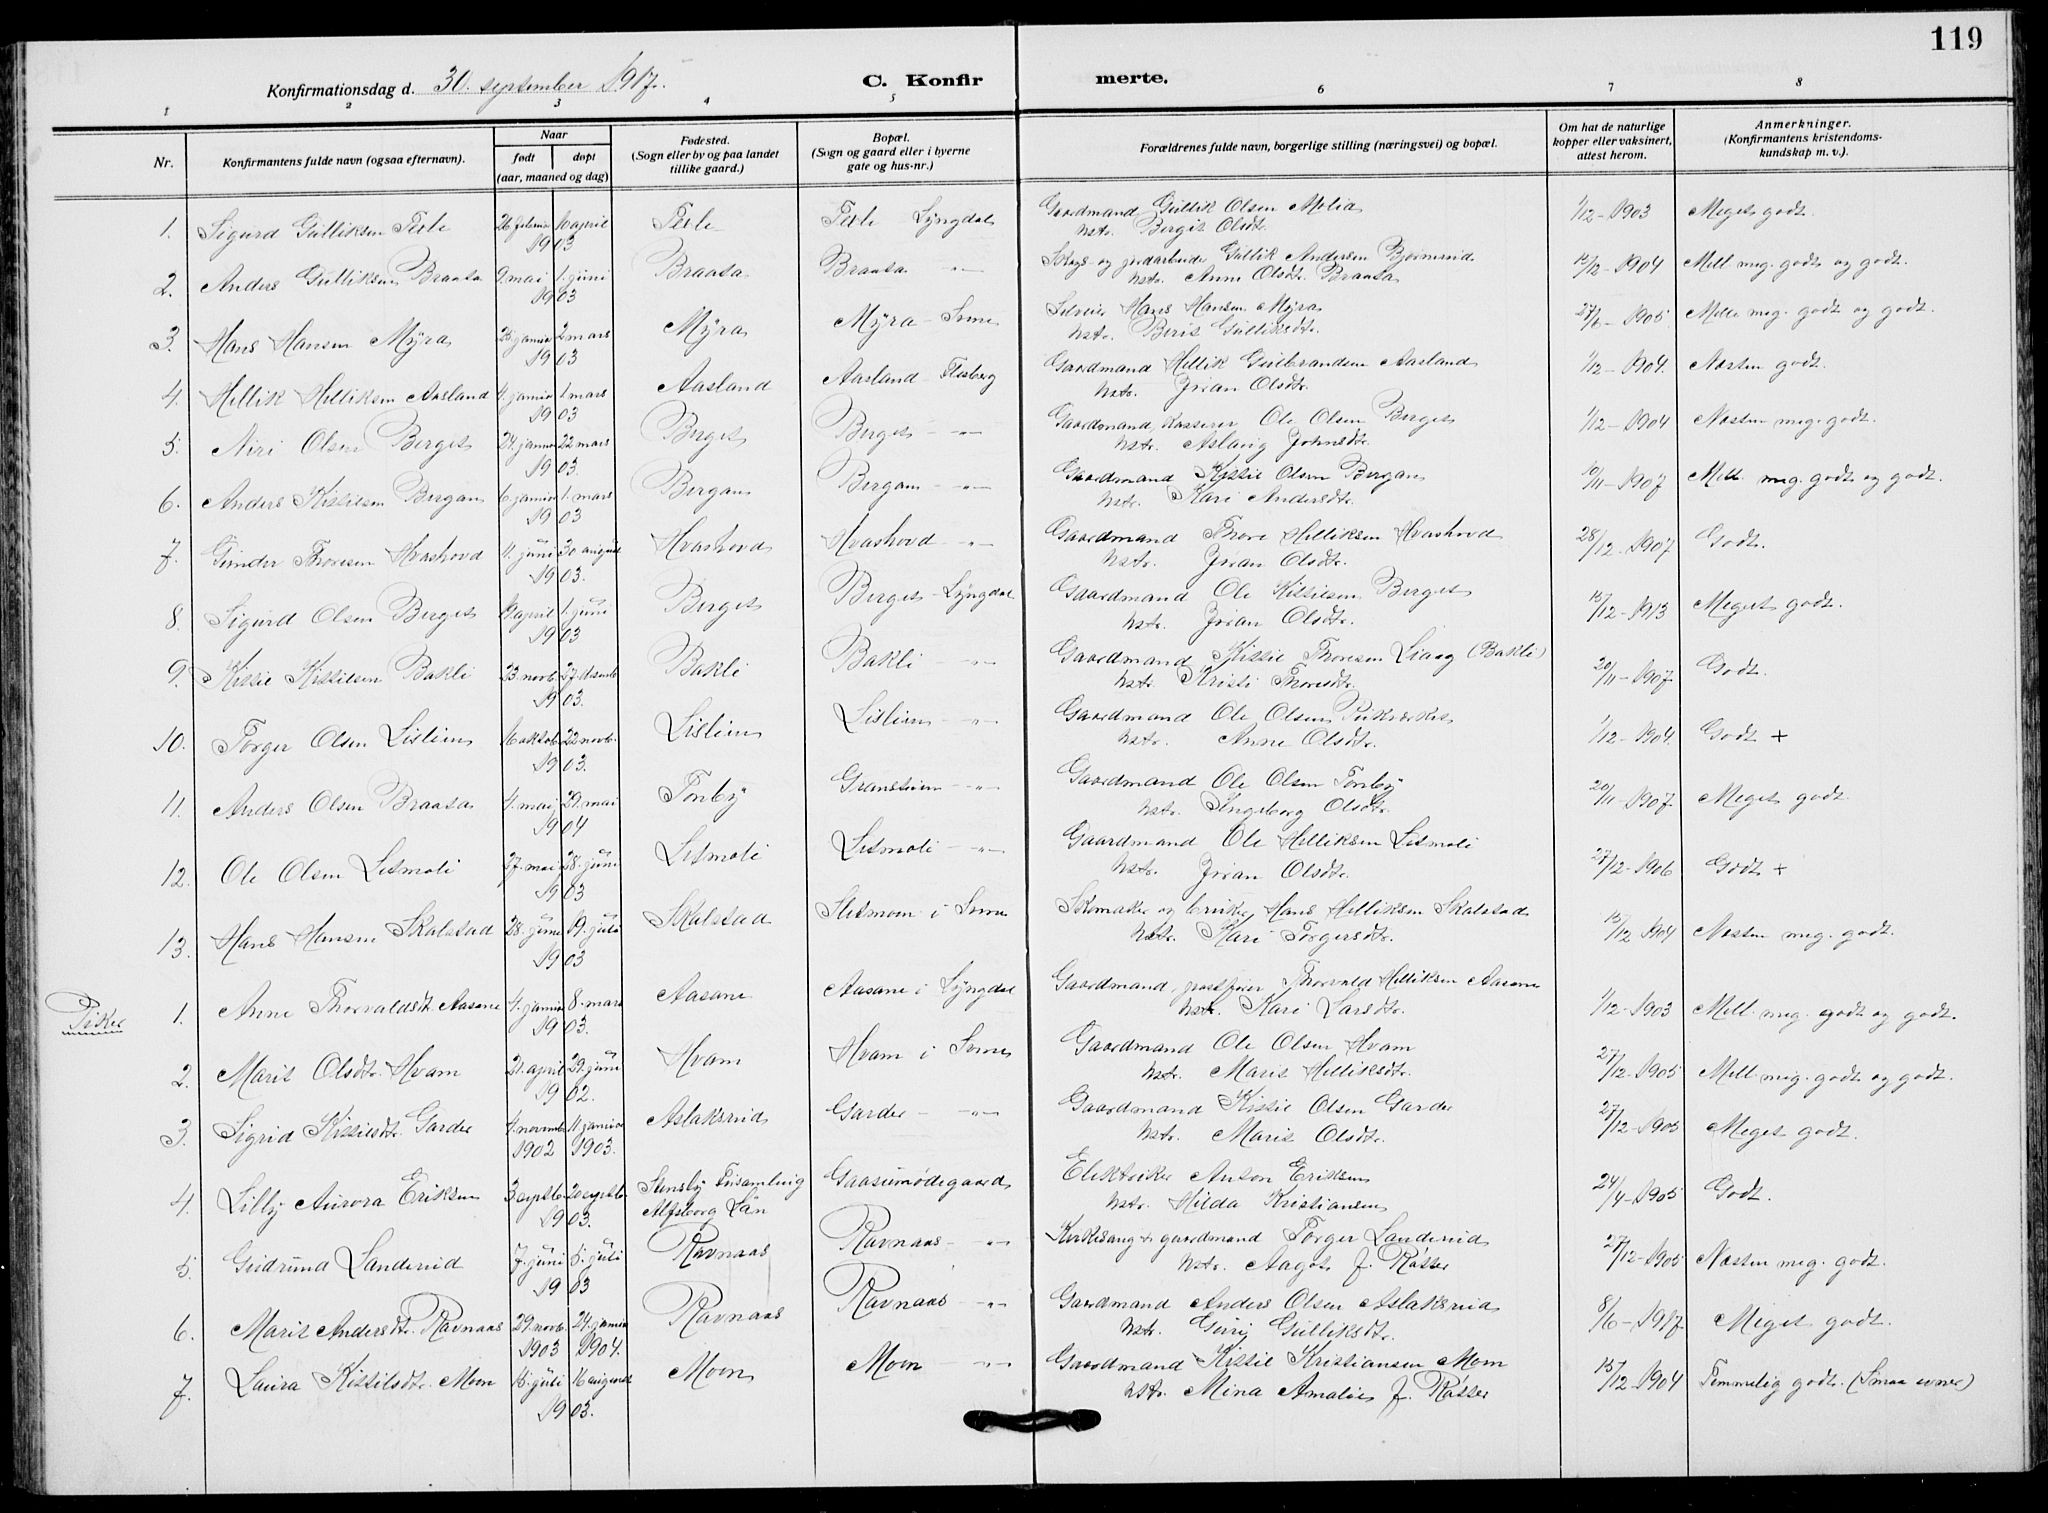 119
Konfirmationsdag d. 30. september 1917. C. Konfirmerte.
1 2 3 4 5 6 7 8
Nr. Konfirmantens fulde navn (ogsaa efternavn). Naar født døpt (aar, maaned og dag) Fødested. (Sogn eller by og paa landet tillike gaard.) Bopæl. (Sogn og gaard eller i byerne gate og hus-nr.) Forældrenes fulde navn, borgerlige stilling (næringsvei) og bopæl. Om hat de naturlige kopper eller vaksinert, attest herom. Anmerkninger. (Konfirmantens kristendomskundskap m. v.).
1. Sigurd Gulliksen 26 februar 10 april Lyngdal Gaardmand Gullik Olsen Molid 1/12-1903 Meget godt.
1903 hstr. Bergit Olsdtr.
2. Anders Gulliksen Braata 9. mai 1. juni Braata Braata -"- Skogs- og jordarbeider Gullik Andersen Bjørnerud 12/12-1904 Mell. meg. godt og godt.
1903 hstr. Anne Olsdtr. Braata
3. Hans Hansen Myra 25. januar 2 mars Myra Myra - Svene Hans Hansen Myra 27/6-1905 Mell. meg. godt og godt.
1903 hstr. Berit Gulliksdtr.
4. Hellik Helliksen Aasland 4. januar 1. mars Aasland Aasland - Flesberg Gaardmand Hellik Gulbrandsen Aasland 1/12-1904. Næsten godt.
1903 hstr. Jøran Olsdtr.
5. Niri Olsen Berget 24. januar 22 mars Berget Berget -"- Gaardmand, kasserer Ole Olsen Berget 1/12-1904 Næsten meg. godt.
1903. hstr. Aslaug Johnsdtr.
6. Anders Kittilsen Bergan 6. januar 1. mars Bergan Bergan -"- Gaardmand Kittil Olsen Bergan 10/11-1907 Mell. meg. godt og godt.
1903 hstr. Kari Andersdtr.
7. Gunder Thoresen Hvashovd 11. juni 30 august Hvashovd Hvashovd -"- Gaardmand Thore Helliksen Hvashovd 28/12-1907 Godt.
1903. hstr. Jøran Olsdtr.
8. Sigurd Olsen Berget 19. april 1. juni Berget Berget - Lyngdal Gaardmand Ole Kittilsen Berget 15/12-1913 Meget godt.
1903 hstr. Jøran Olsdtr.
9. Kittil Kittilsen Bakli 23. novb. 27. decemb. Bakli Bakli -"- Gaardmand Kittil Thoresen Liaag (Bakli) 20/11-1907 Godt.
1903. hstr. Kristi Thoresdtr.
10. Torger Olsen Lislien 16 oktob. 22 novb. Lislien Lislien -"- Gaardmand Ole Olsen 1/12-1904. Godt +
1903. hstr. Anne Olsdtr.
11. Anders Olsen Braata 4. mai 29. mai Tonby Granstuen -"- Gaardmand Ole Olsen Tonby 20/11-1907 Meget godt
1904 hstr. Ingeborg Olsdtr.
12. Ole Olsen Letmoli 27. mai 28. juni Letmoli Letmoli -"- Gaardmand Ole Helliksen Letmoli 27/12-1906 Godt +
1903 hstr. Jøran Olsdtr.
13. Hans Hansen Skalstad 28. juni 19. juli Skalstad Sletmoen i Svene Skomaker og bruker Hans Helliksen Skalstad 15/12-1904 Næsten meg. godt.
1903 hstr. Kari Torgersdtr.
Piker
1. Anne Thorvaldsdt. Aasane 4. januar 8. mars Aasane Aasane i Lyngdal Gaardmand, postfører Thorvald Helliksen Aasane 1/12-1903 Mell. meg. godt og godt.
1903. hstr. Kari Larsdtr.
2. Marit Olsdtr. Hvam 21. april 29. juni Hvam Hvam i Svene Gaardmand Ole Olsen Hvam 27/12-1905 Mell. meg. godt og godt.
1902. hstr. Marit Helliksdtr.
3. Sigrid Kittilsdtr. Garder 4. novemb. 11 januar Aslaksrud Garder -"- Gaardmand Kittil Olsen Garder 27/12-1905 Meget godt.
1902 1903. hstr. Marit Olsdtr.
4. Lilly Aurora Eriksen 3 septb. 20 septb. Stensby Församling Gaasumødegaard Elektriker Anton Eriksen 24/4-1905 Godt.
1903. Alfsborg Län hstr. Hilda Kristiansen
5. Gudrund Landerud 7. juni 5. juli Ravnaas Ravnaas -"- Kirkesang. + gaardmand Torger Landerud 27/12-1905 Næsten meg. godt.
1903 hstr. Aagot f. Råster
6. Marit Andersdtr. Ravnaas 29. novb. 24. januar Ravnaas Ravnaas -"- Gaardmand Anders Olsen Aslaksrud 8/6-1917 Meget godt.
1903 1904. hstr. Guri Gulliksdtr.
7. Laura Kittilsdtr. Moen 15. juli 16 august Moen Moen -"- Gaardmand Kittil Kristiansen Moen 15/12-1904 Temmelig godt. (Smaa evner)
1903. hstr. Mina Amalie f. Råster